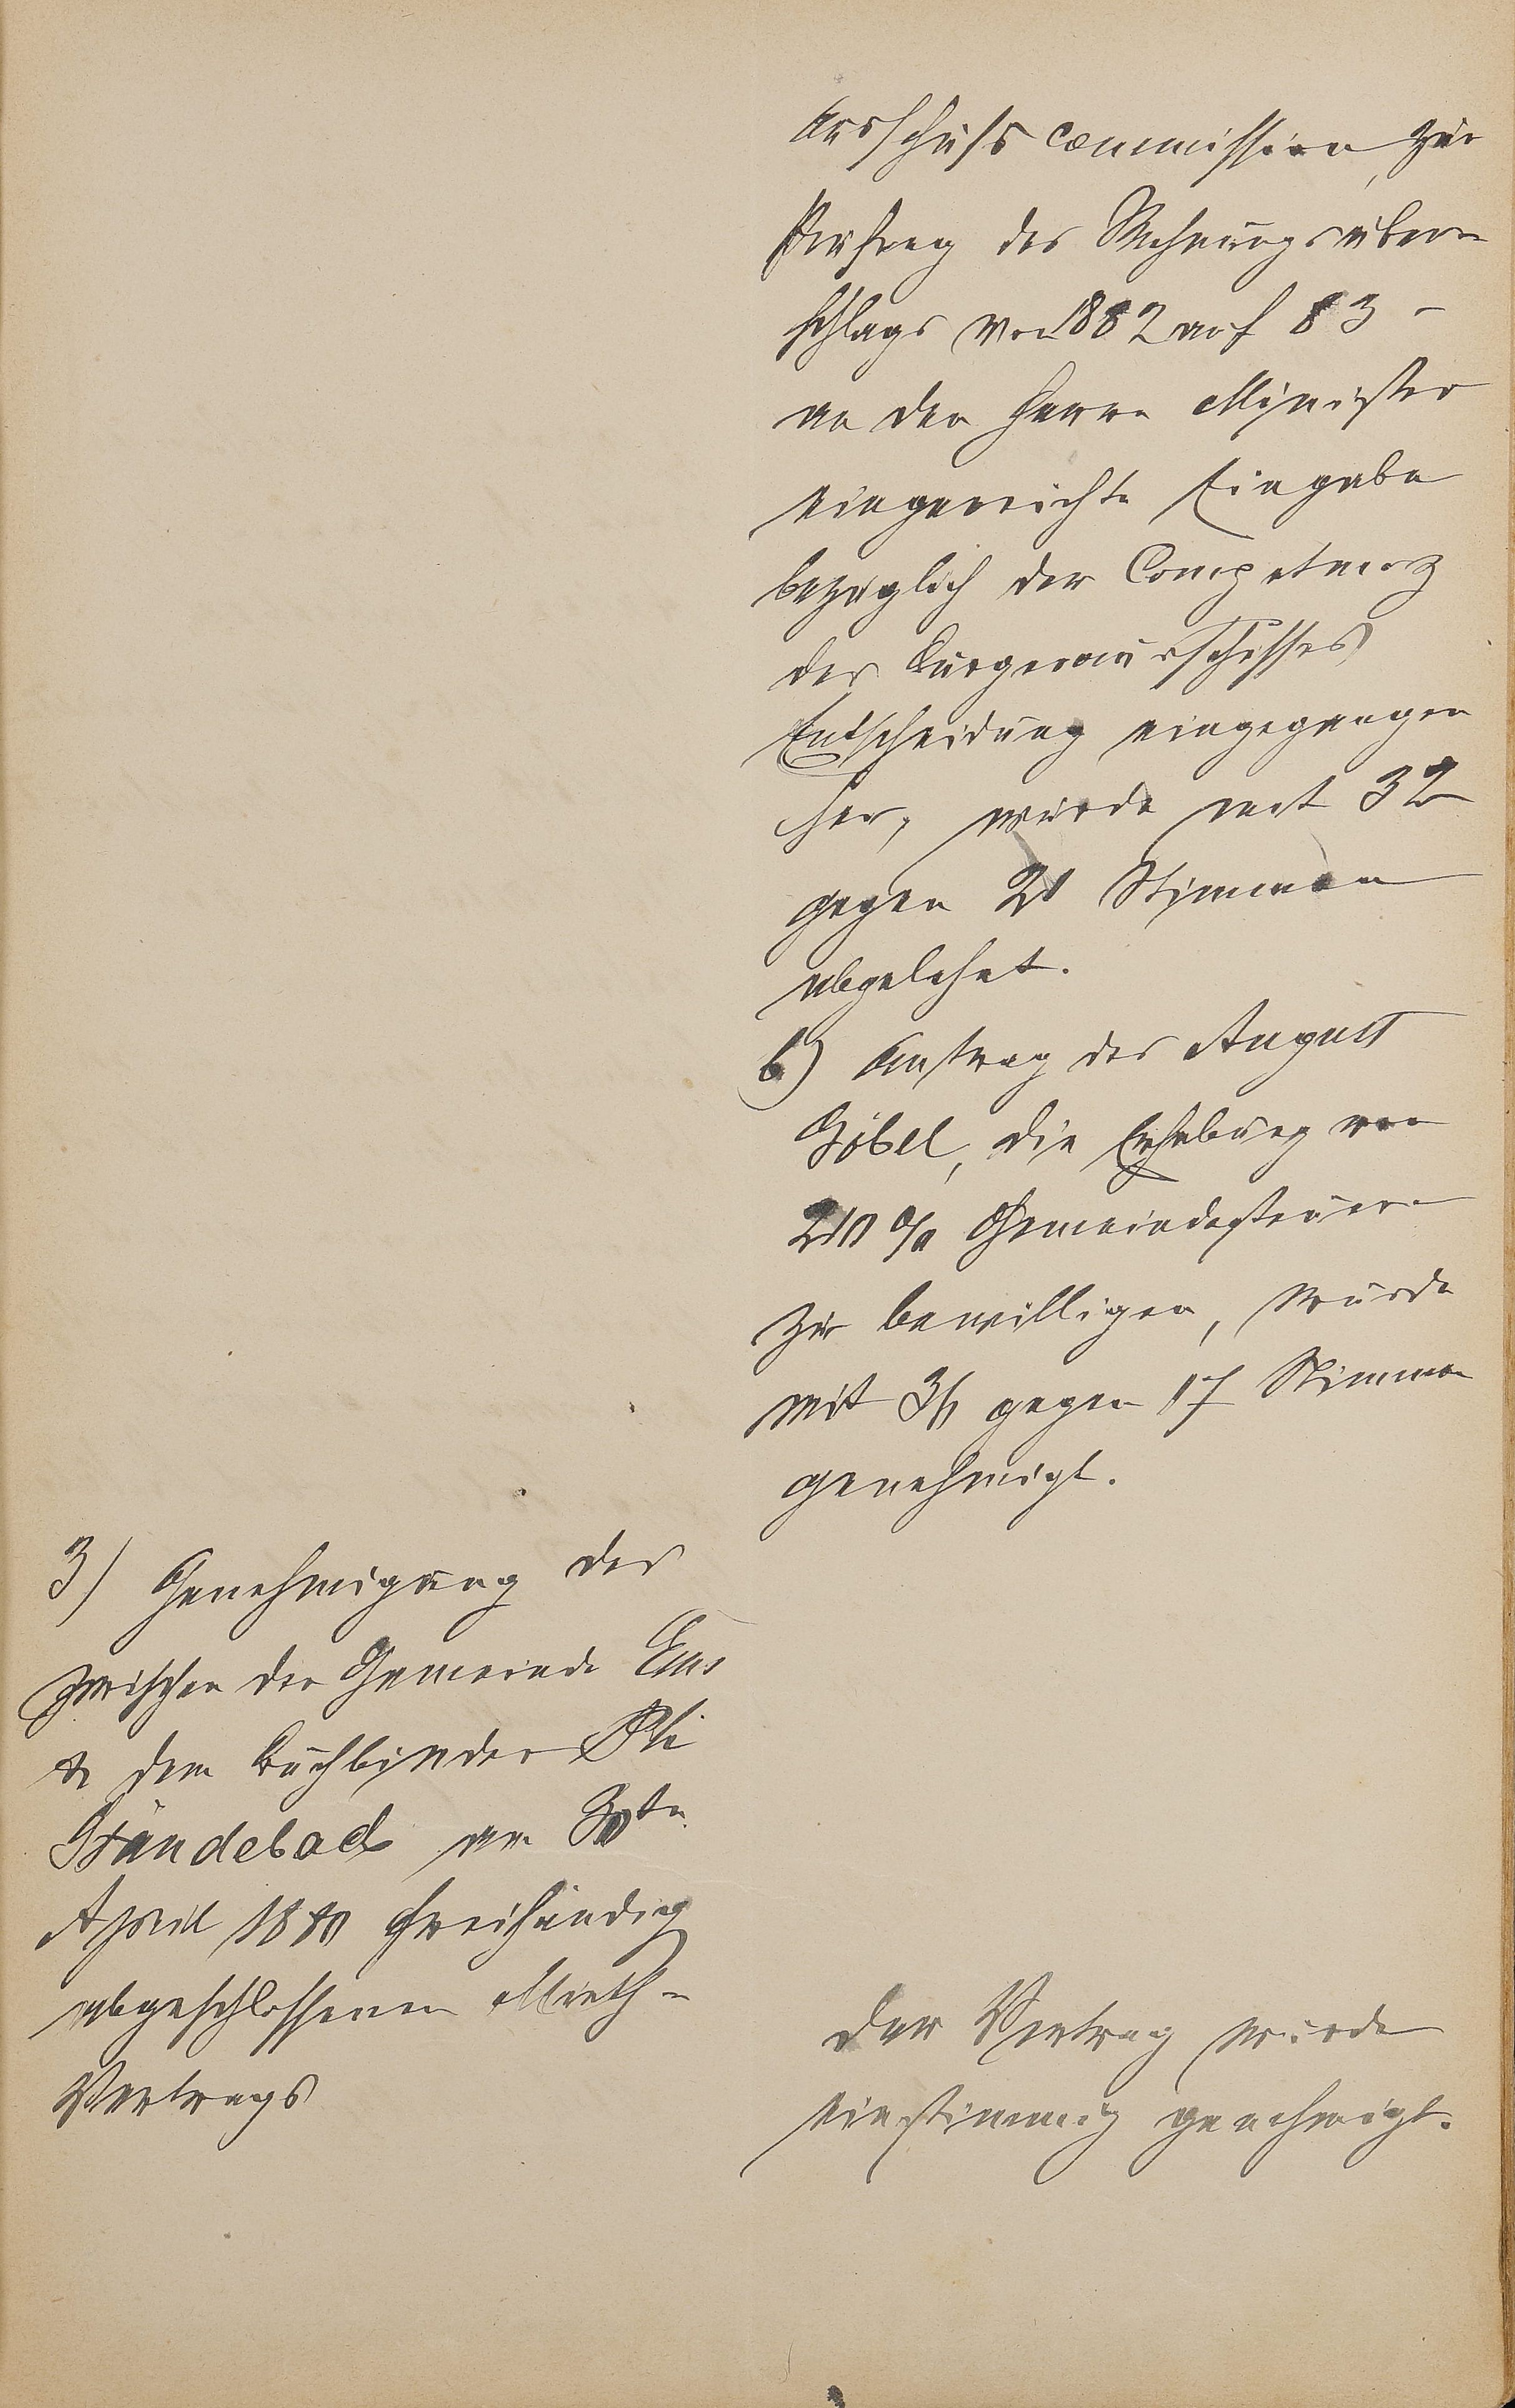 Ausschuss commission zur
Prüfung des Rechnungsüber-
schlags von 1882 auf 83 -
an den Herrn Minister
eingereichte Eingabe
bezüglich der Competenz
des Bürgerausschusses
Entscheidung eingegangen
sei, wurde mit 32
gegen 21 Stimmen
abgelehnt.
b) Antrag des August
Göbel, die Erhebung von
% Gemeindesteuern
zu bewilligen, wurde
mit 36 gegen 17 Stimmen
genehmigt.
3) Genehmigung des
zwischen der Gemeinde Ems
& dem Buchbinder Ph
Ständebach am 30ten
April freihändig
abgeschlossenen Mieth-
Vertrags
Der Vertrag wurde
einstimmig genehmigt.